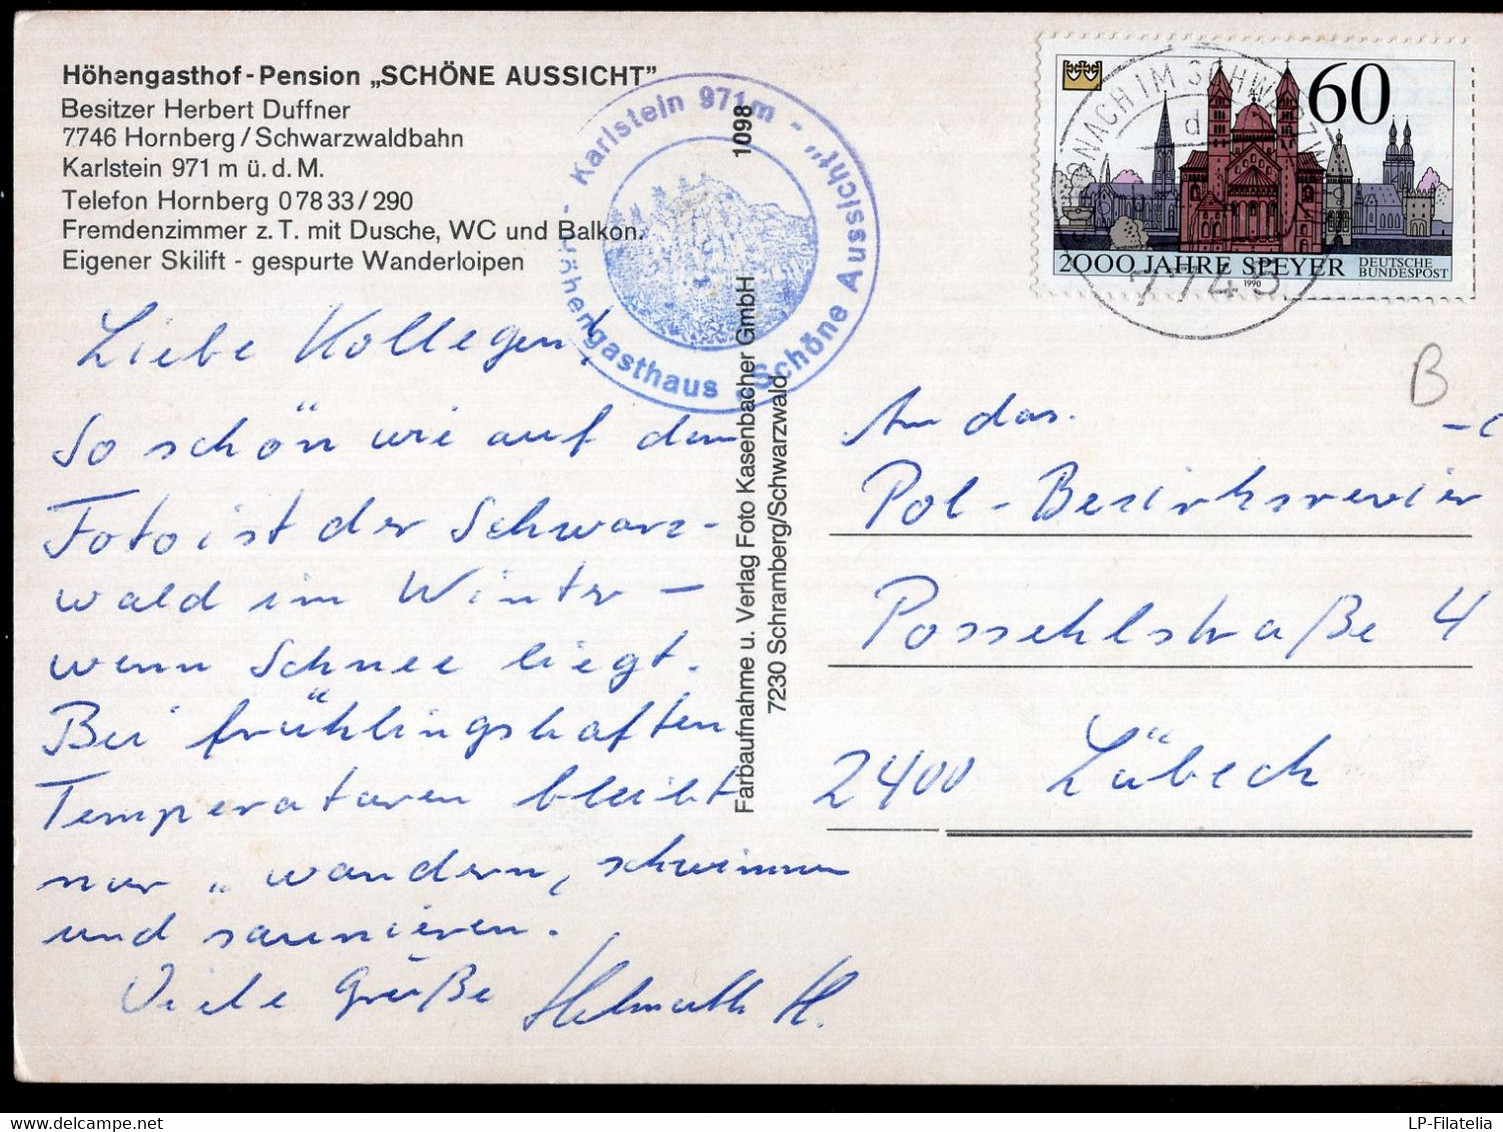 Höhengasthof-Pension „SCHÖNE AUSSICHT”
Besitzer Herbert Duffner
7746 Hornberg/Schwarzwaldbahn
Karlstein 971 m ü.d.M.
Telefon Hornberg 07833/290
Fremdenzimmer z.T. mit Dusche, WC und Balkon.
Eigener Skilift - gespurte Wanderloipen
Karlstein 971m - „Schöne Aussicht”
Höhengasthaus
1098
Farbaufnahme u. Verlag Foto Kasenbacher GmbH
7230 Schramberg/Schwarzwald
60
2000 JAHRE SPEYER
DEUTSCHE
BUNDESPOST
1990
NACH IM SCHWARZW
d
7745
B
Liebe Kollegen,
So schön wie auf dem
Foto ist der Schwarz-
wald im Winter -
wenn Schnee liegt.
Bei frühlingshaften
Temperaturen bleibt
nur „wandern, schwimmen
und saunieren.
Viele Grüße Helmuth H.
An das
Pol-Bezirksrevier
Possehlstraße 4
2400 Lübeck
LP-Filatelia